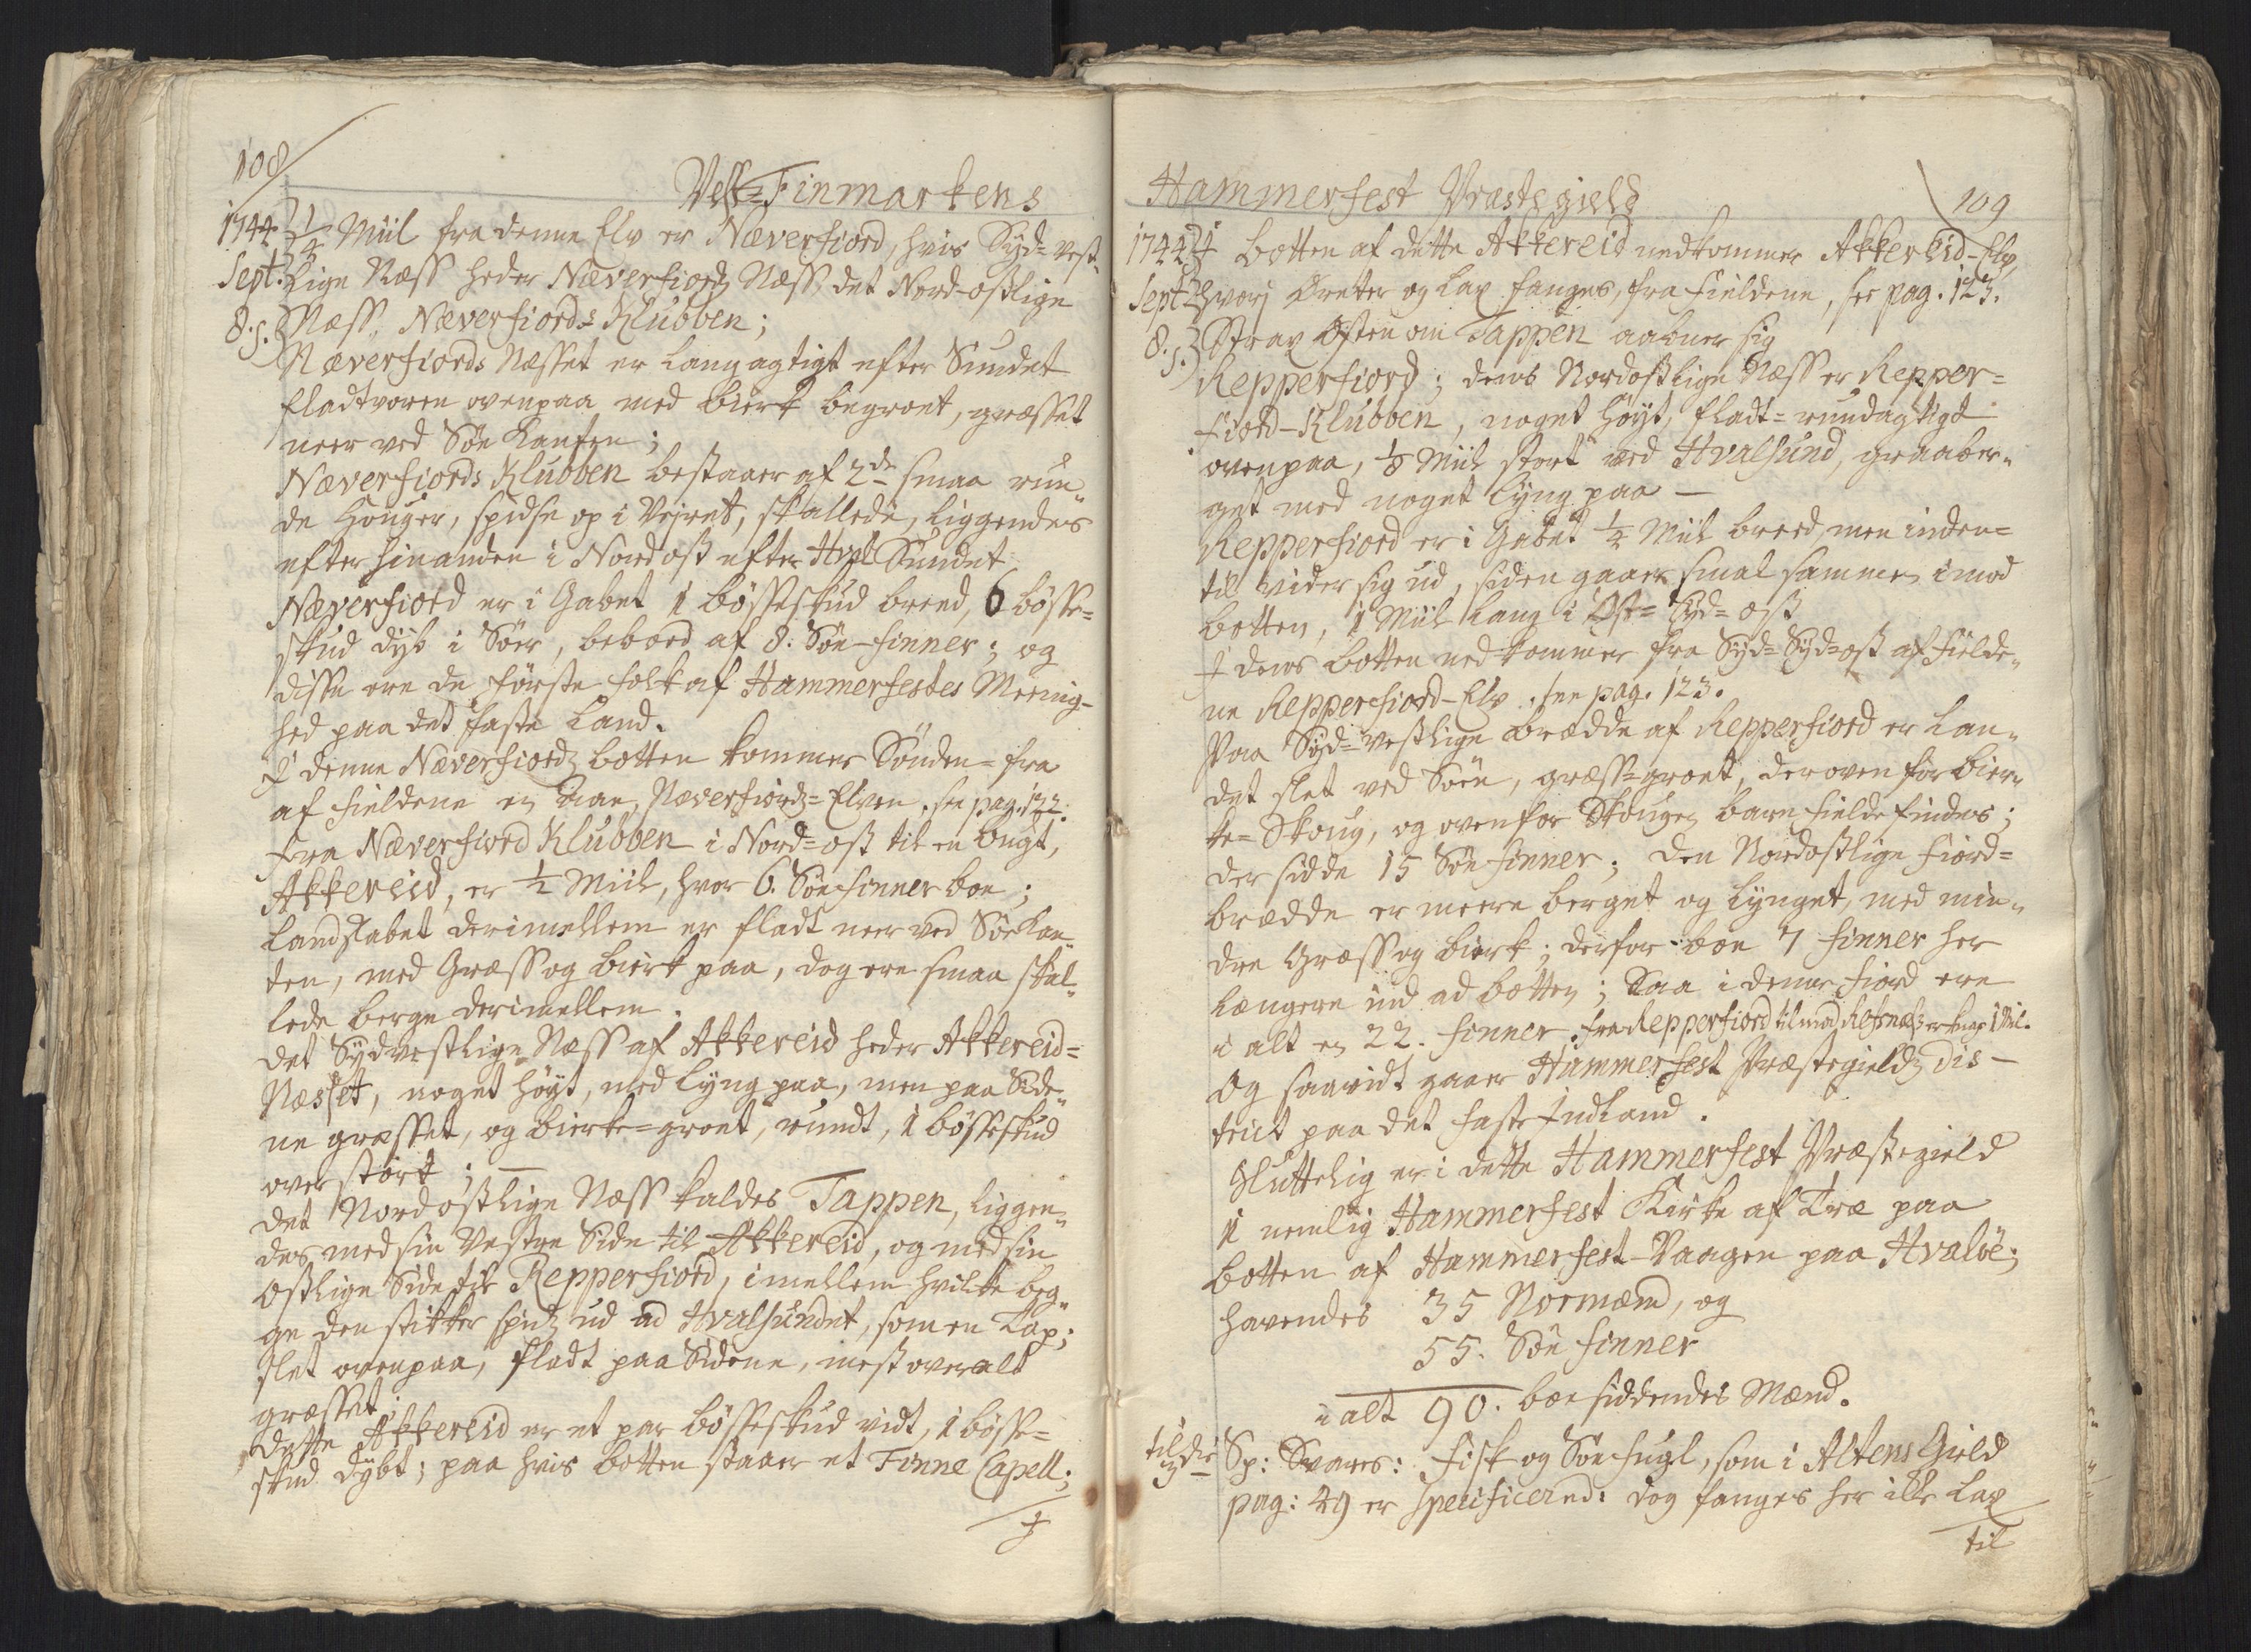 108
Vest-Finmarkens
1744 1/4 Miil fra denne Elv er Næverfiord, hvis Syd-vest-
Sept: lige Næss heder Næverfiordz Næss, det Nord-ostlige
8. s. Næss, Næverfiords Klubben;
Næverfiords Næsset er langagtigt efter Sundet
fladtvoren ovenpaa med birk begroet, græsset
neer ved Søe Kanten;
Næverfiords Klubben bestaaer af 2de smaa run-
de Houger, spidse op i Vejret, skallede, liggendes
efter hinanden i Nordost efter Hval Sundet
Næverfiord er i Gabet 1 bösseskud breed, 6 bösse-
skud dyb i Sör, beboed af 8. Söe-finner; og
disse ere de förste folk af Hammerfestes Meenig-
hed paa det faste Land.
I denne Næverfiordz botten kommer Sönden-fra
af fieldene en Aae, Næverfiordz-Elven. see pag. 122.
Fra Næverfiord Klubben i Nord-ost til en bugt,
Akkereid, er 1/2 Miil, hvor 6. Söefinner boe;
Landskabet derimellem er fladt neer ved Söe Kan-
ten, med Græss og birk paa, dog ere smaa skal-
lede berge derimellem.
Det Sydvestlige Næss af Akkereid heder Akkereid-
Næsset, noget höyt, med lyng paa, men paa Side-
ne græsset, og birke-groet, rundt, 1 bösseskud
over stort; —
Det Nordostlige Næss kaldes Tappen, liggen-
des med sin Vestre Side til Akkereid, og med sin
Ostlige Side til Repperfiord, imellem hvilke beg-
ge den stikker spidz ud ad Hvalsundet, som en Tap;
slet ovenpaa, fladt paa Sidene, mest overalt
græsset;
Dette Akkereid er et par bösseskud vidt, 1 bösse-
skud dybt; paa hvis botten staaer et Finne Capell;
I
Hammerfest Præstegield
109
1744 I botten af dette Akkereid nedkommer Akkereid-Elv,
Sept: hvorj Örreter og Lax fanges, fra fieldene, see pag. 123.
8. s. Strax Østen om Tappen aabner sig
Repperfiord; dens Nordostlige Næss er Repper-
fiord-Klubben, noget höyt, fladt-rundagtigt
ovenpaa, 1/8 Miil stort ved Hvalsund, graaber-
get med noget lyng paa —
Repperfiord er i Gabet 1/4 Miil breed, men inden-
til vider sig ud, siden gaaer smal sammen imod
botten, 1 Miil lang i Ost-Syd-ost
I dens botten nedkommer fra Syd-Sydost af fielde-
ne Repperfiord-Elv. see pag. 123.
Paa Syd-vestlige brædde af Repperfiord er Lan-
det slet ved Söen, græss-groet, der oven for bir-
ke-Skoug, og ovenfor Skougen bare fielde findes;
der sidde 15 Söe finner; Den Nordostlige fiord-
brædde er meere berget og lynget, med min-
dre Græss og birk; derfor boe 7 finner her
længere ind ad botten; Saa i denne fiord ere
i alt en 22. finner. fra Repperfiord til mod Refsnæs er knap 1 Mil.
Og saavidt gaaer Hammerfest Præstegieldz Dis-
trict paa det faste Indland.
Sluttelig er i dette Hammerfest Præstegield
1 nemlig Hammerfest Kirke af Træ paa
botten af Hammerfest-Vaagen paa Hvalöe;
havendes 35 Normænd, og
55. Söe finner
i alt 90. boesiddendes Mænd.
til die 3 Sp: Svares: Fisk og Söefugl, som i Altens Gield
pag: 49 er specificered: dog fanges her ikke Lax
til